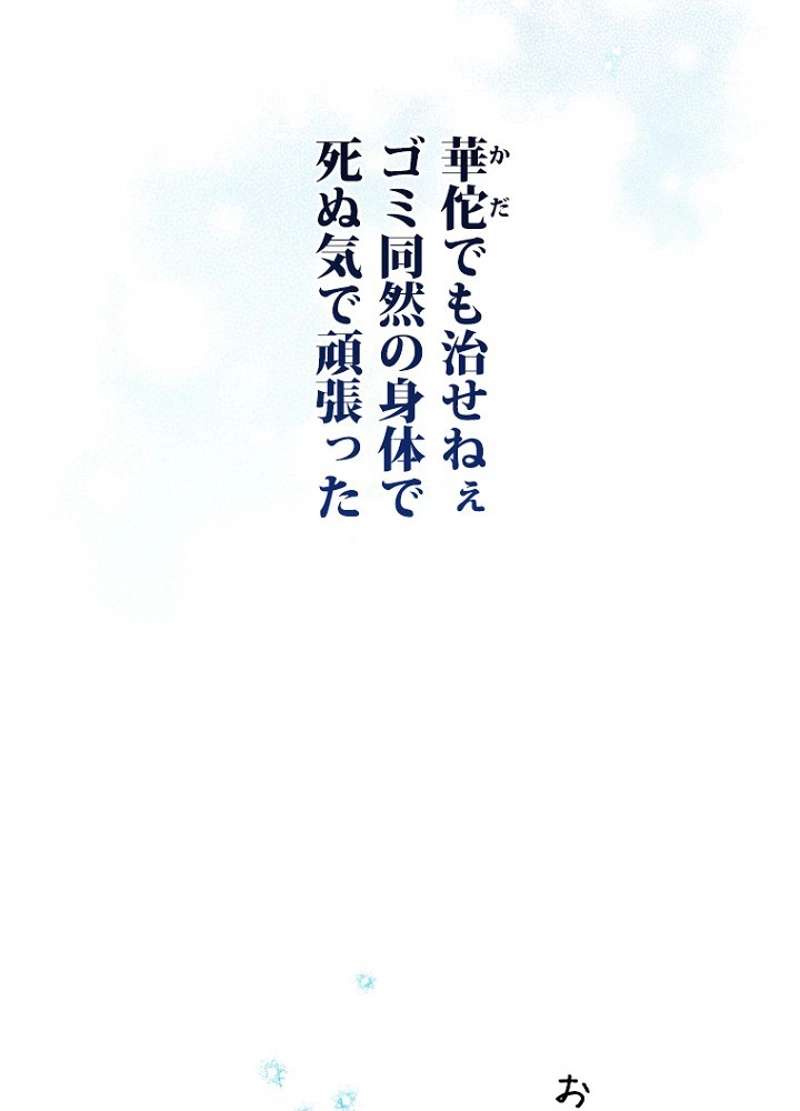 華佗でも治せねぇ
ゴミ同然の身体で
死ぬ気で頑張った
お